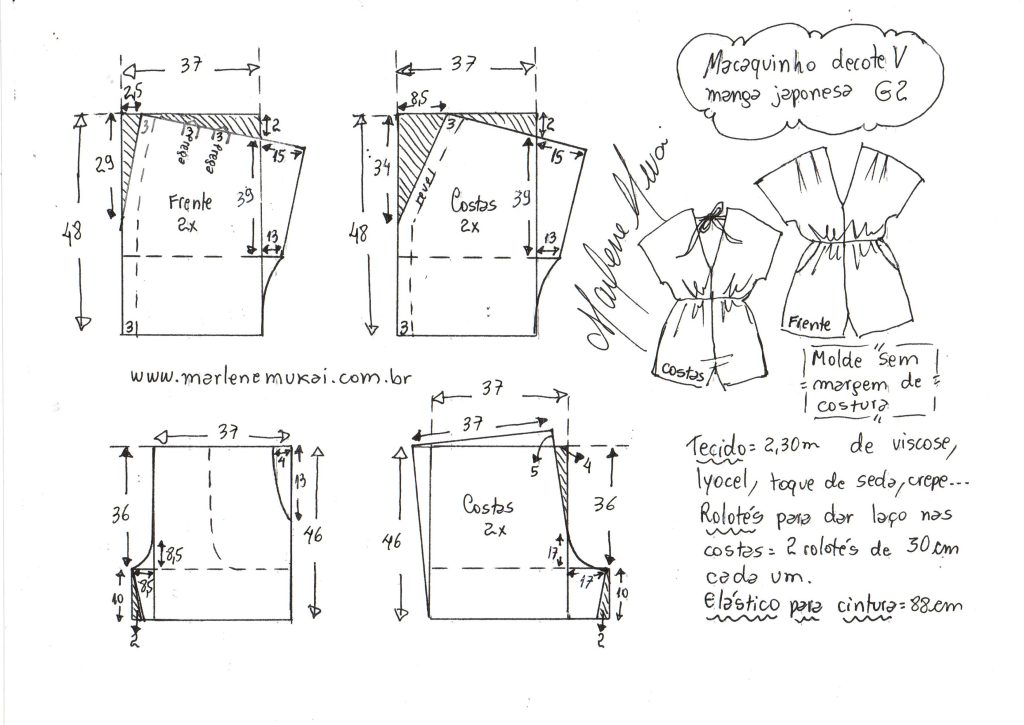 Macaquinho decote V
manga japonesa G2
37
2,5
3
3
3
prega
prega
2
15
29
48
Frente
2x
39
13
3
37
8,5
3
2
15
34
48
revel
Costas
2x
39
13
3
Marlene Mukai
costas
Frente
Molde sem
margem de
costura
www.marlenemukai.com.br
37
4
13
36
46
8,5
8,5
10
2
37
37
5
4
36
46
Costas
2x
17
17
10
2
Tecido = 2,30m de viscose,
lyocel, toque de seda, crepe...
Rolotés para dar laço nas
costas = 2 rolotés de 30cm
cada um.
Elástico para cintura = 88cm